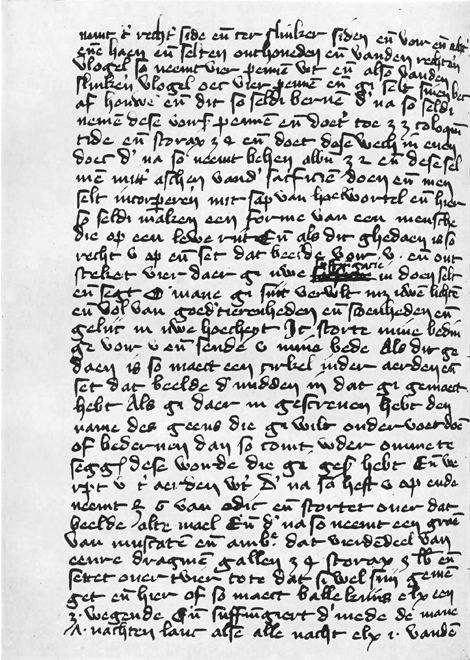 nemt t' recht' side en̄ ter slinker siden en̄ voir en̄ acht'
en̄e haen en̄ selten onthoueden en̄ vanden rechten
vlogel so neemt vier pennē wt en̄ alsoe vanden
slinkē vlogel oec vier pennē en̄ gi selt sinen bec
af houwe en̄ dit so seldi bernē d' na so seldi
nemen dese voirs pennen en̄ doet toe ʒ ʒ coloquin
tide en̄ storax ʒ 4 en̄ doet dese wech in enen
doec d' na so neemt behen albū ʒ 2 en̄ dese sel
men mitt' aschen vand' sacrificiē doen en̄ men
selt incorperen mit sap van wortel en̄ hier
so seldi maken een forme van een mensche
die op een lewe rijt En̄ als dit ghedaen is so
recht v op en̄ set dat beelde voir v. en̄ ont
steket vier daer gi uwe sacrificie in doen selt
en̄ segt O mane gi sijt vervult mz uwe lichte
en̄ vol van goed'tierenheden en̄ scoenheden en̄
geluc in uwe hoecheyt Ic storte mine bedin
ge voir v en̄ sende v mine bede Als dit ge
daen is so maect een cirkel inder aerden en̄
set dat beelde d' midden in dat gi gemaect
hebt Als gi daer in gescreuen hebt den
name des geens die gi wilt onder voet doē
of bederuen dan so comt weder omme te
segg' dese worde die gi ges' hebt En̄ we
rpt v t' aerden wt D' na so heft v op ende
neemt van edic en̄ stortet ouer dat
beelde alte mael En̄ d' na so neemt een graē
van muscaten en̄ amb' dat vierdedeel van
eenre dragmen gallen ʒ 4 storax en̄
settet ouer tvier tote dat si wel sijn gemē
get en̄ hier of so maect ballekens elx een
ʒ. wegende En̄ suffumigiert d' mede de mane
nachten lanc alse alle nacht elx 1. vandē